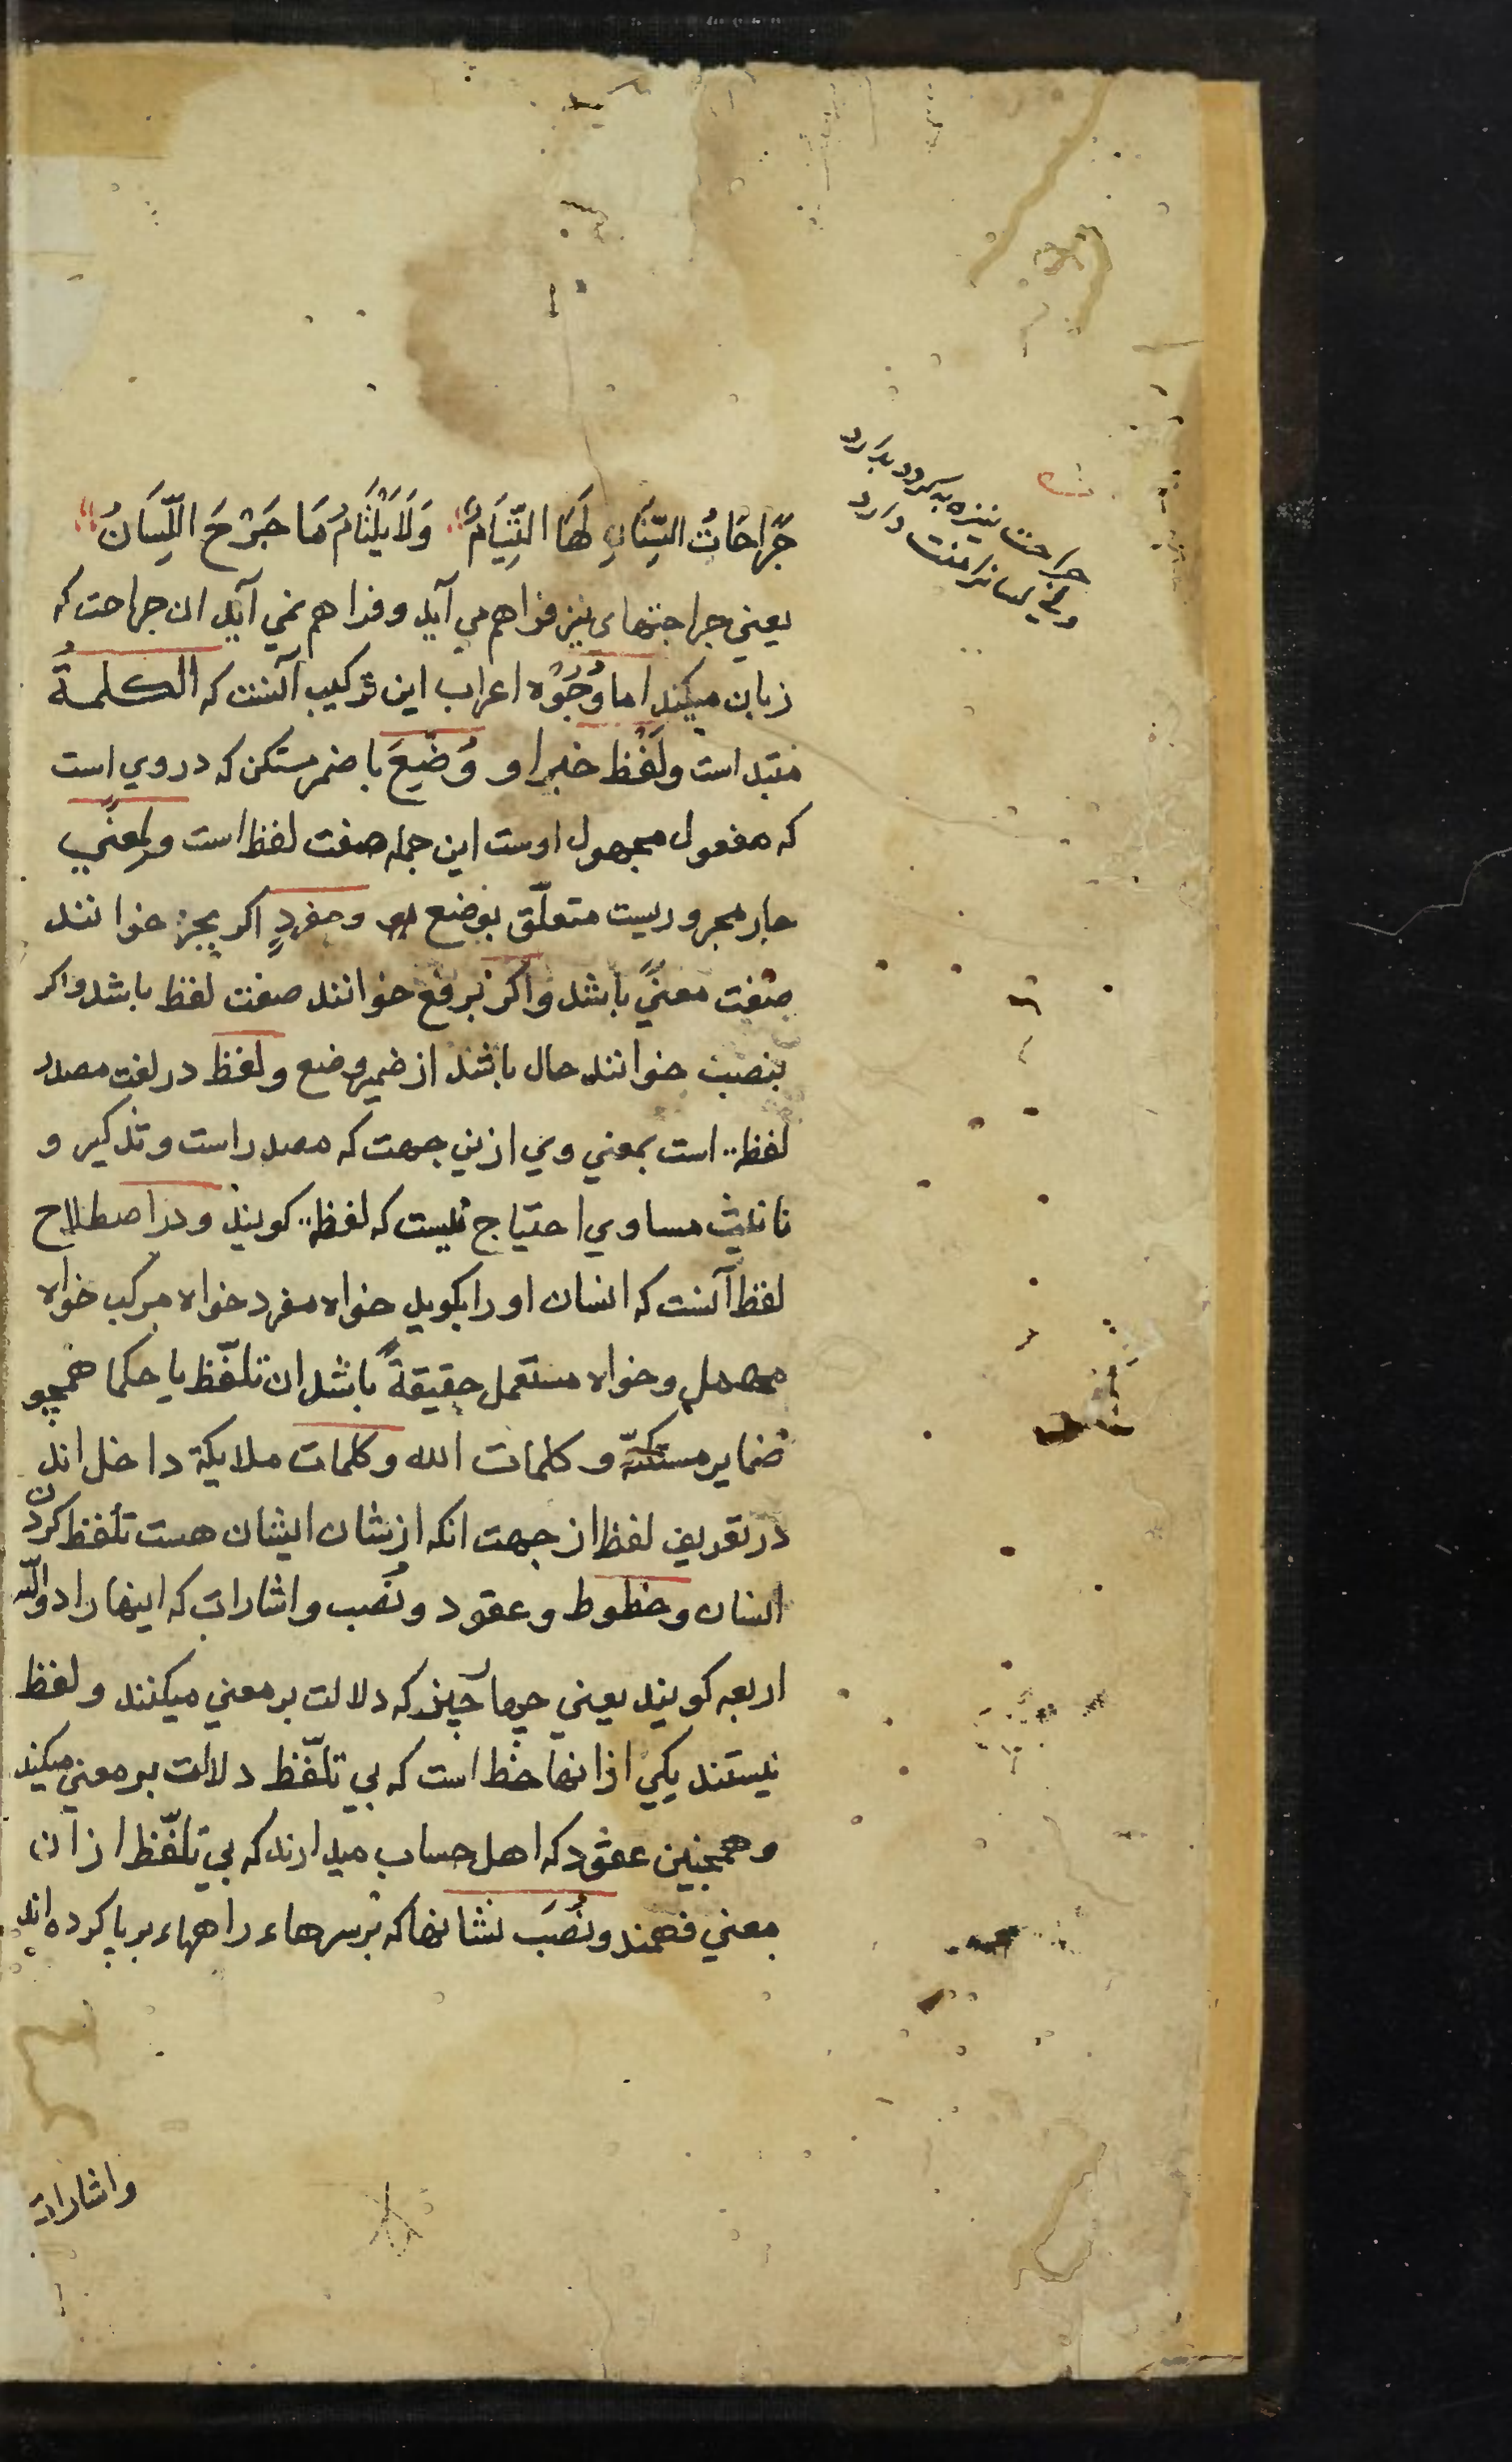 جَرَاحَاتُ السِّنَانِ لَهَا الْتِئَامٌ وَلَا يَلْتَامُ مَا جَرَحَ اللِّسَانُ
يعني جراحتهاى نيز فراهم مي آيد و فراهم نمي آيد ان جراحت كه
زبان ميكند اما وُجُوْه اعراب اين تركيب آنست كه الكلمةُ
مبتداست ولَفْظ خبر او و وُضِعَ با ضمير مستكن كه در وي است
كه مفعول مجهول اوست اين جمله صفت لفظ است و لمعنًي
جار مجروريست متعلّق بوضع و مفردٍ اكر بجر خوانند
صفت معنيً باشد و اكر برفع خوانند صفت لفظ باشد و اكر
بنصب خوانند حال باشد از ضمير وضع و لفظ در لغت مصدر
لفظ است بمعني وي ازين جهت كه مصدر است و تذكير و
تانيث مساوي احتياج نيست كه لفظة كويند و در اصطلاح
لفظ آنست كه انسان او را بكويد خواه مفرد خواه مركب خواه
مهمل و خواه مستعمل حقيقةً باشد ان تلفّظ يا حكما همچو
ضماير مستكنّه و كلمات الله و كلمات ملايكة داخل اند
در تعريف لفظ از جهت انكه از شان ايشان هست تلفظ كردن
انسان و خطوط و عقود و نُصُب و اشارات كه اينها را دوالّ
اربعه كويند يعني چهار چيز كه دلالت بر معني ميكنند و لفظ
نيستند يكي از انها خط است كه بي تلفّظ دلالت بر معني ميكند
و همچنين عقود كه اهل حساب ميدارند كه بي تلفّظ از ان
معني فهمند و نُصُب نشانها كه بر سرهاء راهها بر پا كرده اند
واشارات
جراحت نيزه به كردد بدارد
ولى
دارد